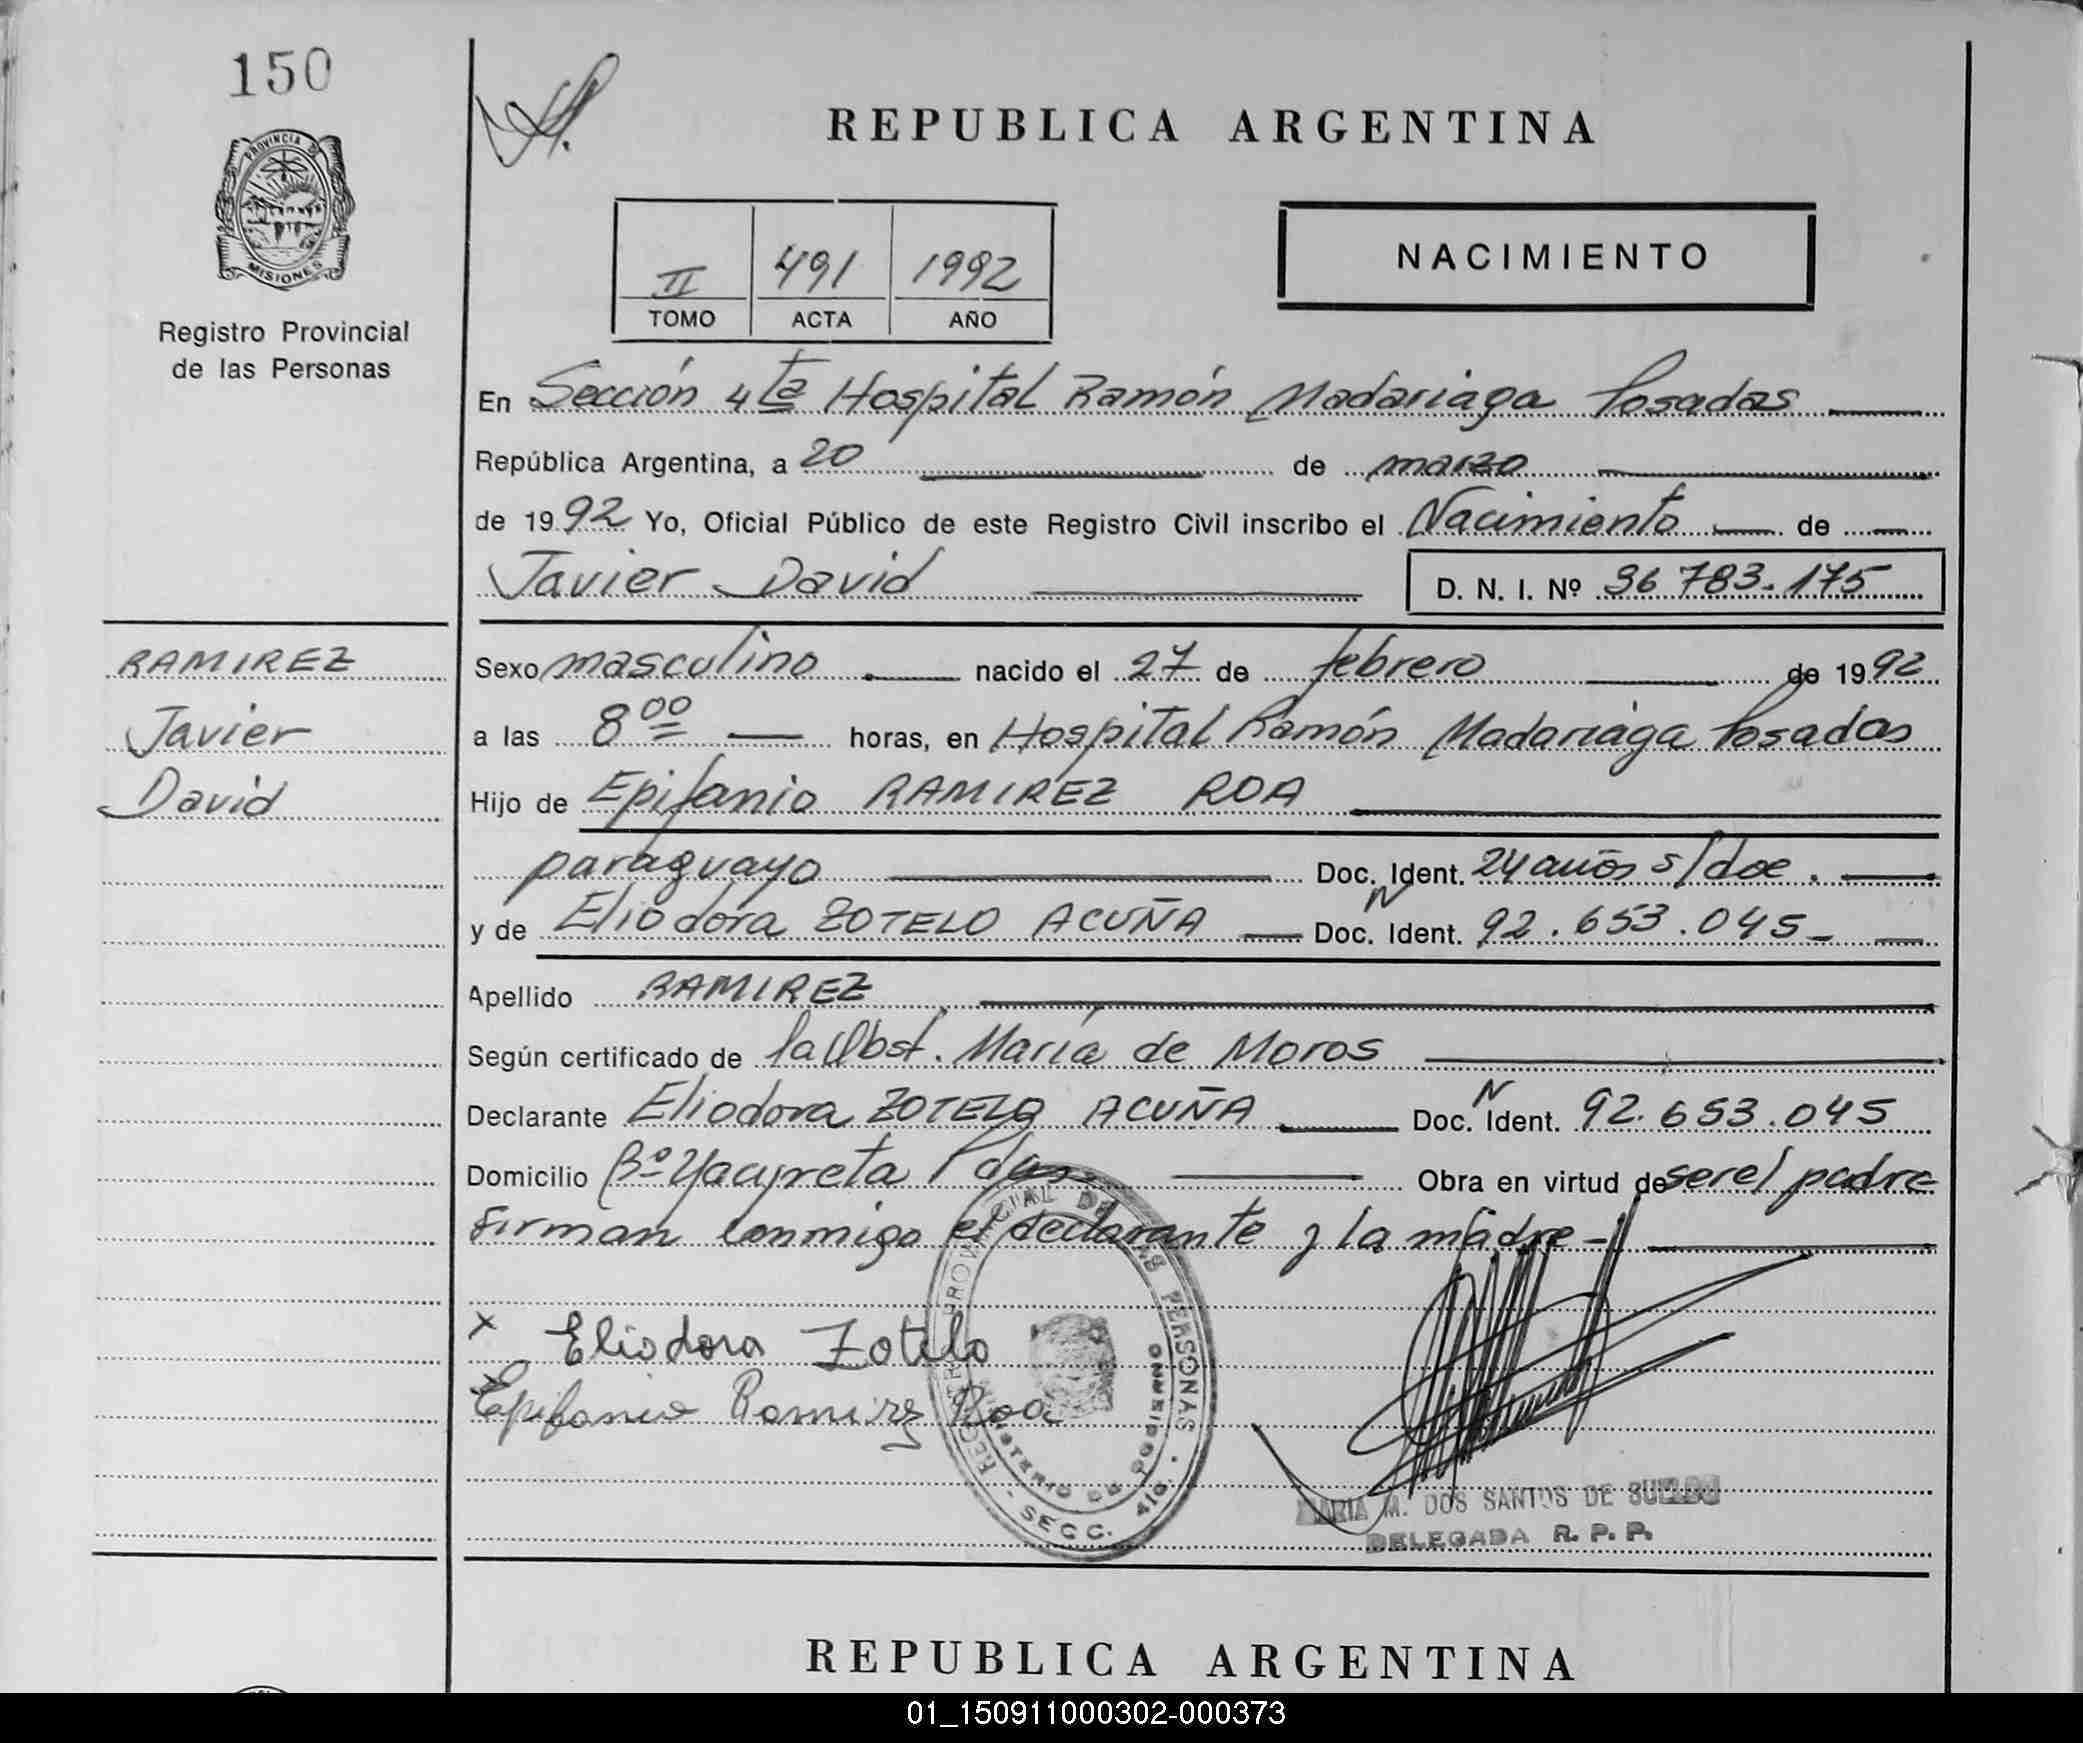 150
REPUBLICA ARGENTINA
PROVINCIA D
MISIONES
Registro Provincial
de las Personas
II 491 1992
TOMO ACTA AÑO
NACIMIENTO
En Sección 4ta Hospital Ramón Madariaga Posadas
República Argentina, a 20 de marzo
de 1992 Yo, Oficial Público de este Registro Civil inscribo el Nacimiento de
Javier David D. N. I. Nº 36 783.175
RAMIREZ
Javier
David
Sexo masculino nacido el 27 de febrero de 1992
a las 8 00 horas, en Hospital Ramón Madariaga Posadas
Hijo de Epifanio RAMIREZ ROA
paraguayo Doc. Ident. 24 años s/doc.
y de Eliodora ZOTELO ACUÑA Doc. N Ident. 92.653.045-
Apellido RAMIREZ
Según certificado de la Obst. María de Moros
Declarante Eliodora ZOTELO ACUÑA Doc. N Ident. 92.653.045
Domicilio Bº Yacyreta Pdas Obra en virtud de ser el padre
Firman conmigo el declarante y la madre-
x Eliodora Zotelo
x Epifanio Ramirez Roa
REGISTRO PROVINCIAL DE LAS PERSONAS
MINISTERIO DE GOBIERNO
- SECC. 4ta. -
MARIA M. DOS SANTOS DE
DELEGADA R. P. P.
REPUBLICA ARGENTINA
01_150911000302-000373